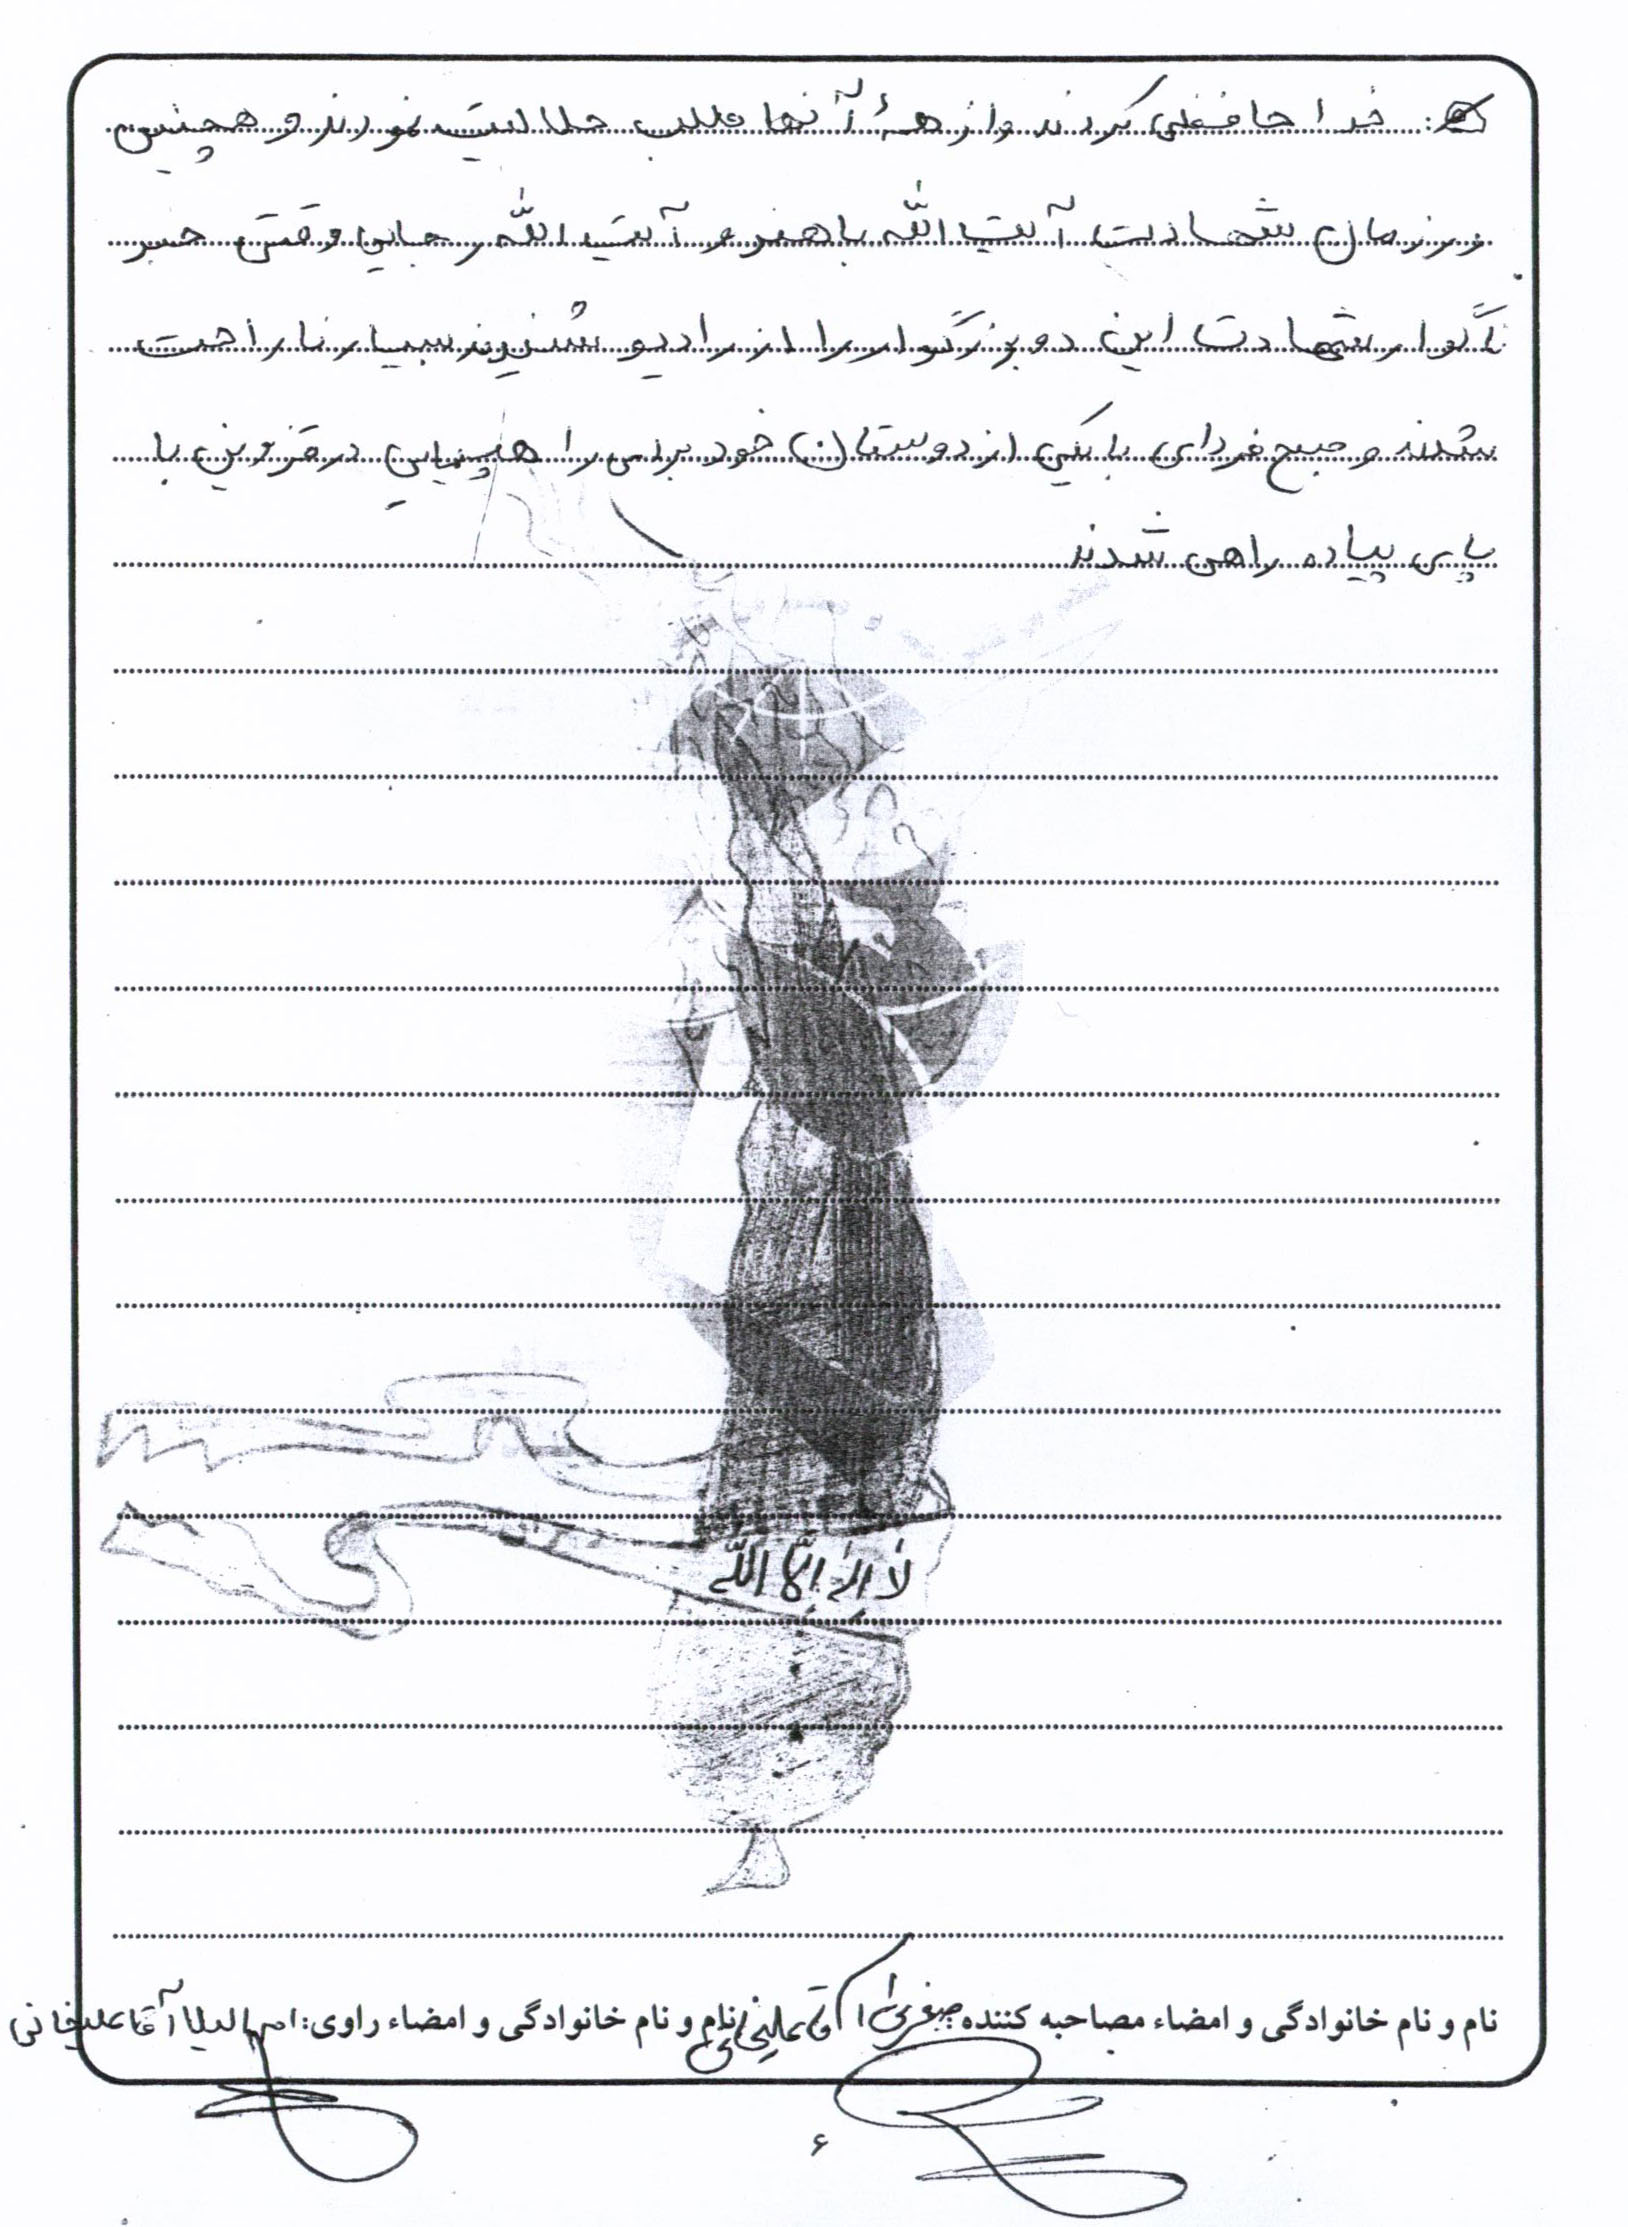 خدا حافظی کردند و از همهٔ آنها طلب حلالیت نمودند و همچنین
در زمان شهادت آیت الله باهنر و آیت الله رجایی وقتی خبر
ناگوار شهادت این دو بزرگوار را از رادیو شنیدند بسیار ناراحت
شدند و صبح فردای با یکی از دوستان خود برای راهپیمایی در قزوین با
پای پیاده راهی شدند
لا اله الا الله
نام و نام خانوادگی و امضاء مصاحبه کننده: صغری آقاعلیخانی نام و نام خانوادگی و امضاء راوی: ام لیلا آقاعلیخانی
۶